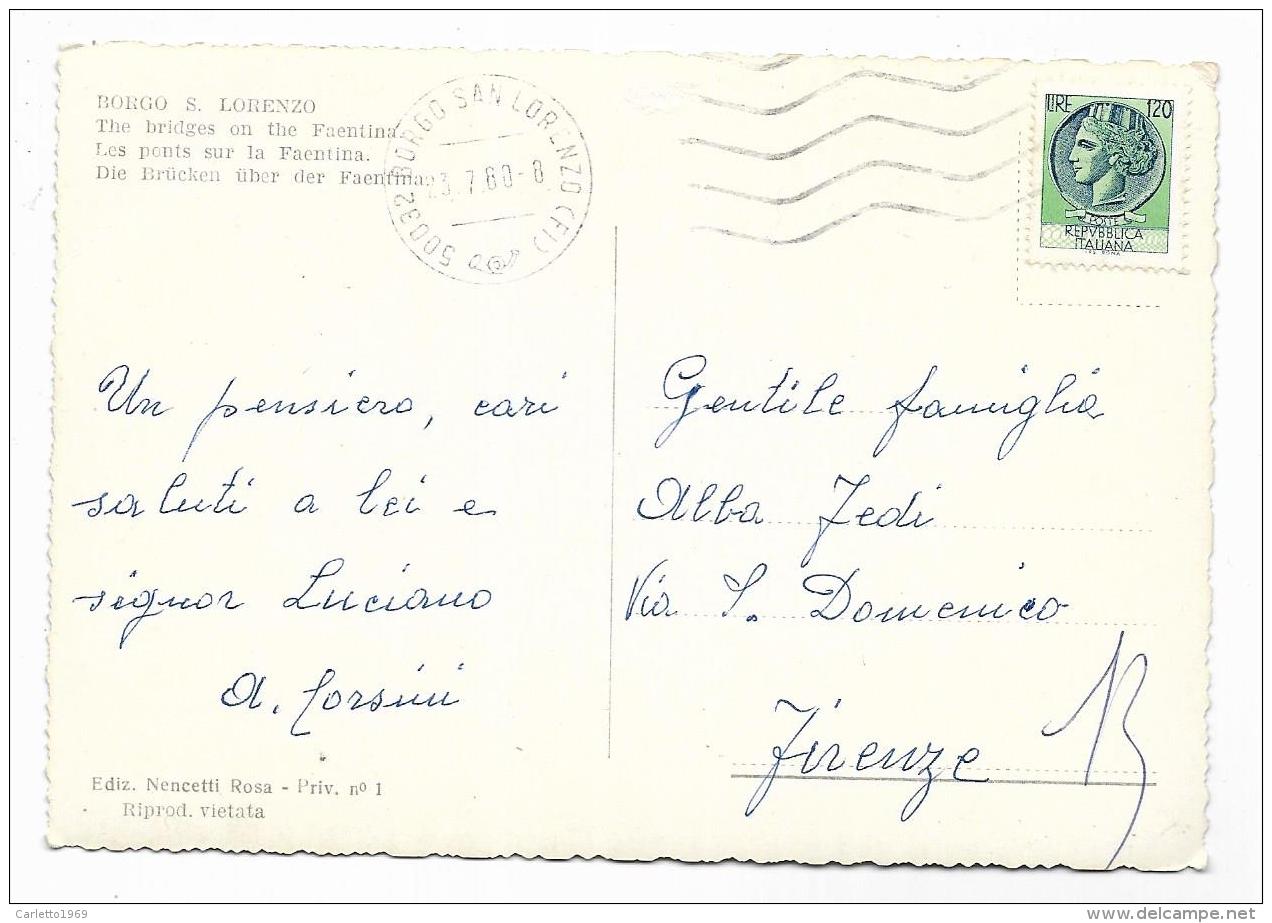 BORGO S. LORENZO
The bridges on the Faentina.
Les ponts sur la Faentina.
Die Brücken über der Faentina.
50032 BORGO SAN LORENZO (FI)
23.7.80-8
LIRE 120
POSTE
REPVBBLICA
ITALIANA
Un pensiero, cari
saluti a lei e
signor Luciano
A. Corsini
Gentile famiglia
Alba Fedi
Via S. Domenico
Firenze
Ediz. Nencetti Rosa - Priv. nº 1
Riprod. vietata
Carletto1969
www.delcampe.net